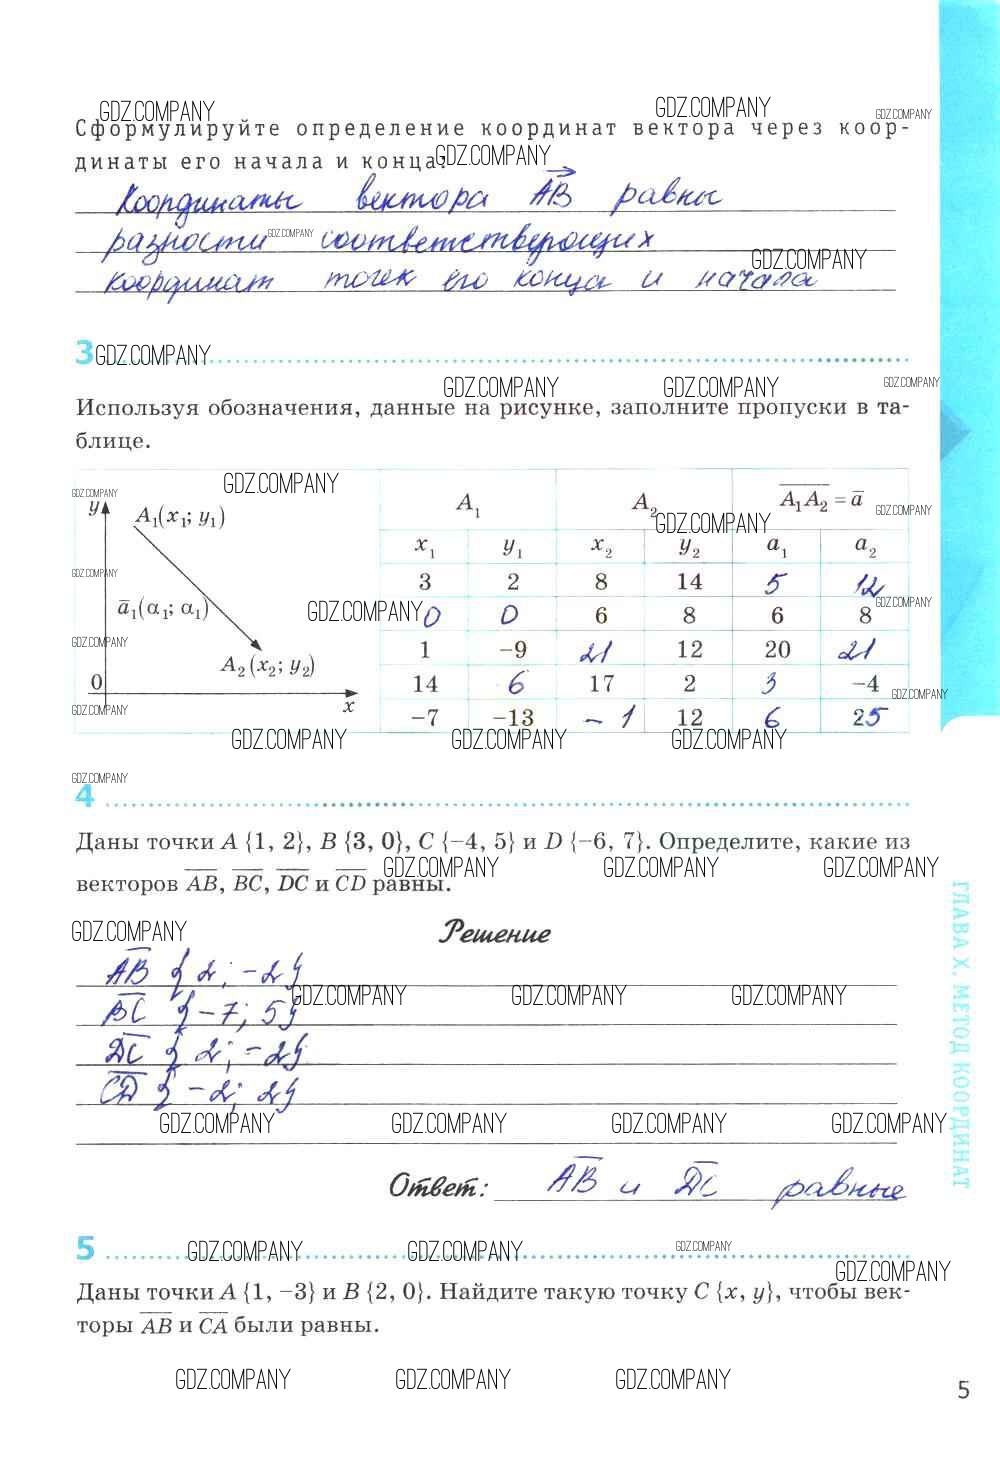 GDZ.COMPANY GDZ.COMPANY GDZ.COMPANY
Сформулируйте определение координат вектора через коор-
динаты его начала и конца: GDZ.COMPANY
Координаты вектора AB равны
разности GDZ.COMPANY соответствующих
GDZ.COMPANY
координат точек его конца и начала
3 GDZ.COMPANY
GDZ.COMPANY GDZ.COMPANY GDZ.COMPANY
Используя обозначения, данные на рисунке, заполните пропуски в та-
блице.
GDZ.COMPANY GDZ.COMPANY
y A₁(x₁; y₁)
GDZ.COMPANY
a̅₁(α₁; α₁)
GDZ.COMPANY
A₂(x₂; y₂)
0
GDZ.COMPANY x
A₁ A₂ A₁A₂ = a̅
GDZ.COMPANY GDZ.COMPANY
x₁ y₁ x₂ y₂ a₁ a₂
3 2 8 14 5 12
GDZ.COMPANY 0 0 6 8 6 8 GDZ.COMPANY
1 −9 21 12 20 21
14 6 17 2 3 −4 GDZ.COMPANY
−7 −13 −1 12 6 25
GDZ.COMPANY GDZ.COMPANY GDZ.COMPANY
GDZ.COMPANY
4
Даны точки A {1, 2}, B {3, 0}, C {−4, 5} и D {−6, 7}. Определите, какие из
GDZ.COMPANY GDZ.COMPANY GDZ.COMPANY
векторов AB, BC, DC и CD равны.
GDZ.COMPANY Решение
AB {2; −2}
GDZ.COMPANY GDZ.COMPANY GDZ.COMPANY
BC {−7; 5}
DC {2; −2}
CD {−2; 2}
GDZ.COMPANY GDZ.COMPANY GDZ.COMPANY GDZ.COMPANY
Ответ: AB и DC равные
5 GDZ.COMPANY GDZ.COMPANY GDZ.COMPANY
GDZ.COMPANY
Даны точки A {1, −3} и B {2, 0}. Найдите такую точку C {x, y}, чтобы век-
торы AB и CA были равны.
GDZ.COMPANY GDZ.COMPANY GDZ.COMPANY
5
ГЛАВА X. МЕТОД КООРДИНАТ